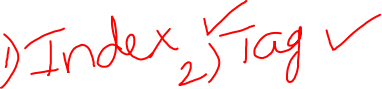 1) Index ✓ 2) Tag ✓